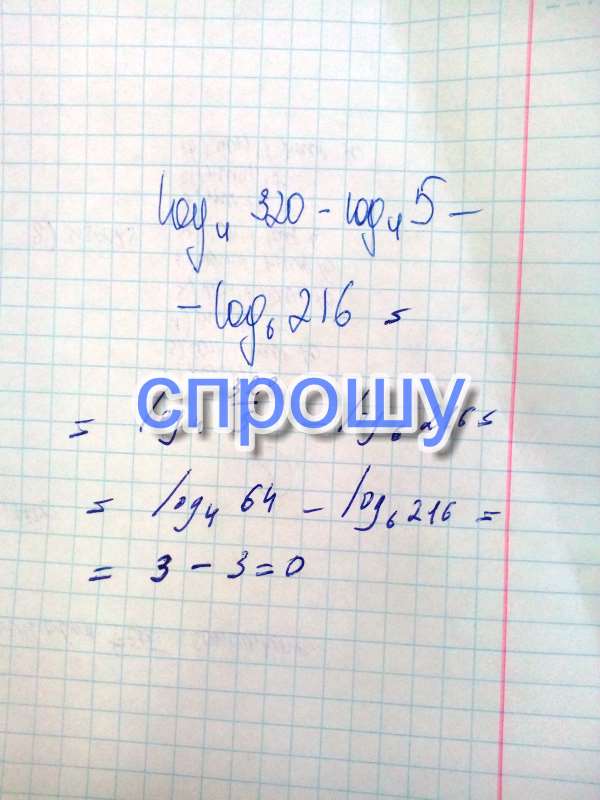 log₄ 320 - log₄ 5 -
- log₆ 216 =
спрошу
= log₄ 64 - log₆ 216 =
= 3 - 3 = 0